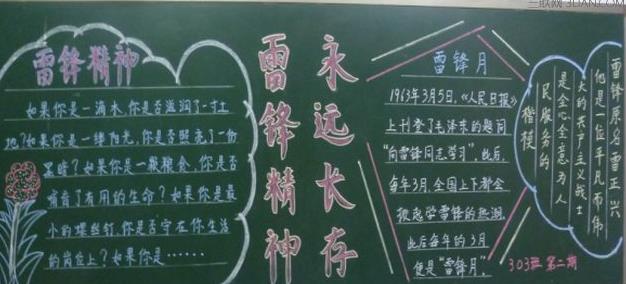 三联网 3LIAN.COM
雷锋精神
如果你是一滴水,你是否滋润了一寸土
地?如果你是一缕阳光,你是否照亮了一份
黑暗?如果你是一颗粮食,你是否
哺育了有用的生命?如果你是最
小的螺丝钉,你是否守在你生活
的岗位上?如果你是……
雷锋精神
永远长存
雷锋月
1963年3月5日,《人民日报》
上刊登了毛泽东的题词
“向雷锋同志学习”,此后,
每年3月,全国上下都会
掀起学雷锋的热潮,
此后每年的3月
便是“雷锋月”。
雷锋原名雷正兴
他是一位平凡而伟
大的共产主义战士
是全心全意为人
民服务的
楷模
303班 第二期